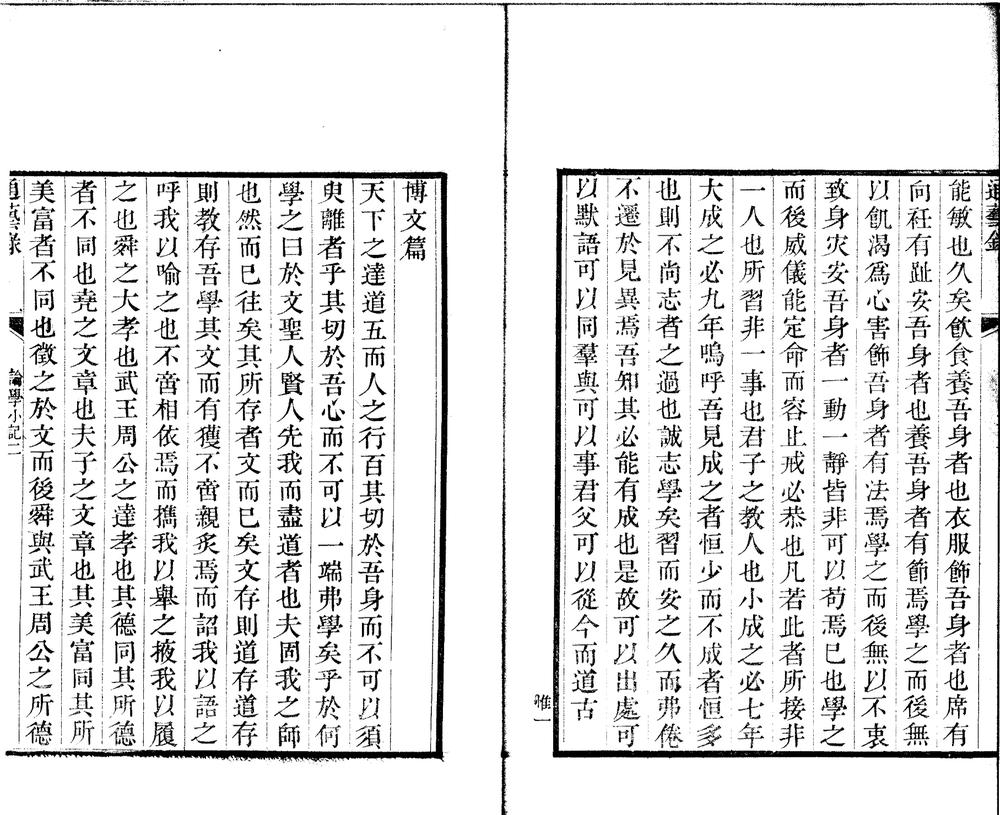 通藝錄
能敏也久矣飮食養吾身者也衣服飾吾身者也席有
向衽有趾安吾身者也養吾身者有節焉學之而後無
以飢渴爲心害飾吾身者有法焉學之而後無以不衷
致身灾安吾身者一動一靜皆非可以苟焉已也學之
而後威儀能定命而容止戒必恭也凡若此者所接非
一人也所習非一事也君子之教人也小成之必七年
大成之必九年嗚呼吾見成之者恒少而不成者恒多
也則不尚志者之過也誠志學矣習而安之久而弗倦
不遷於見異焉吾知其必能有成也是故可以出處可
以默語可以同羣與可以事君父可以從今而道古
惟一
博文篇
天下之達道五而人之行百其切於吾身而不可以須
臾離者乎其切於吾心而不可以一端弗學矣乎於何
學之曰於文聖人賢人先我而盡道者也夫固我之師
也然而已往矣其所存者文而已矣文存則道存道存
則教存吾學其文而有獲不啻親炙焉而詔我以語之
呼我以喻之也不啻相依焉而擕我以舉之掖我以履
之也舜之大孝也武王周公之達孝也其德同其所德
者不同也堯之文章也夫子之文章也其美富同其所
美富者不同也徵之於文而後舜與武王周公之所德
通藝錄
論學小記二